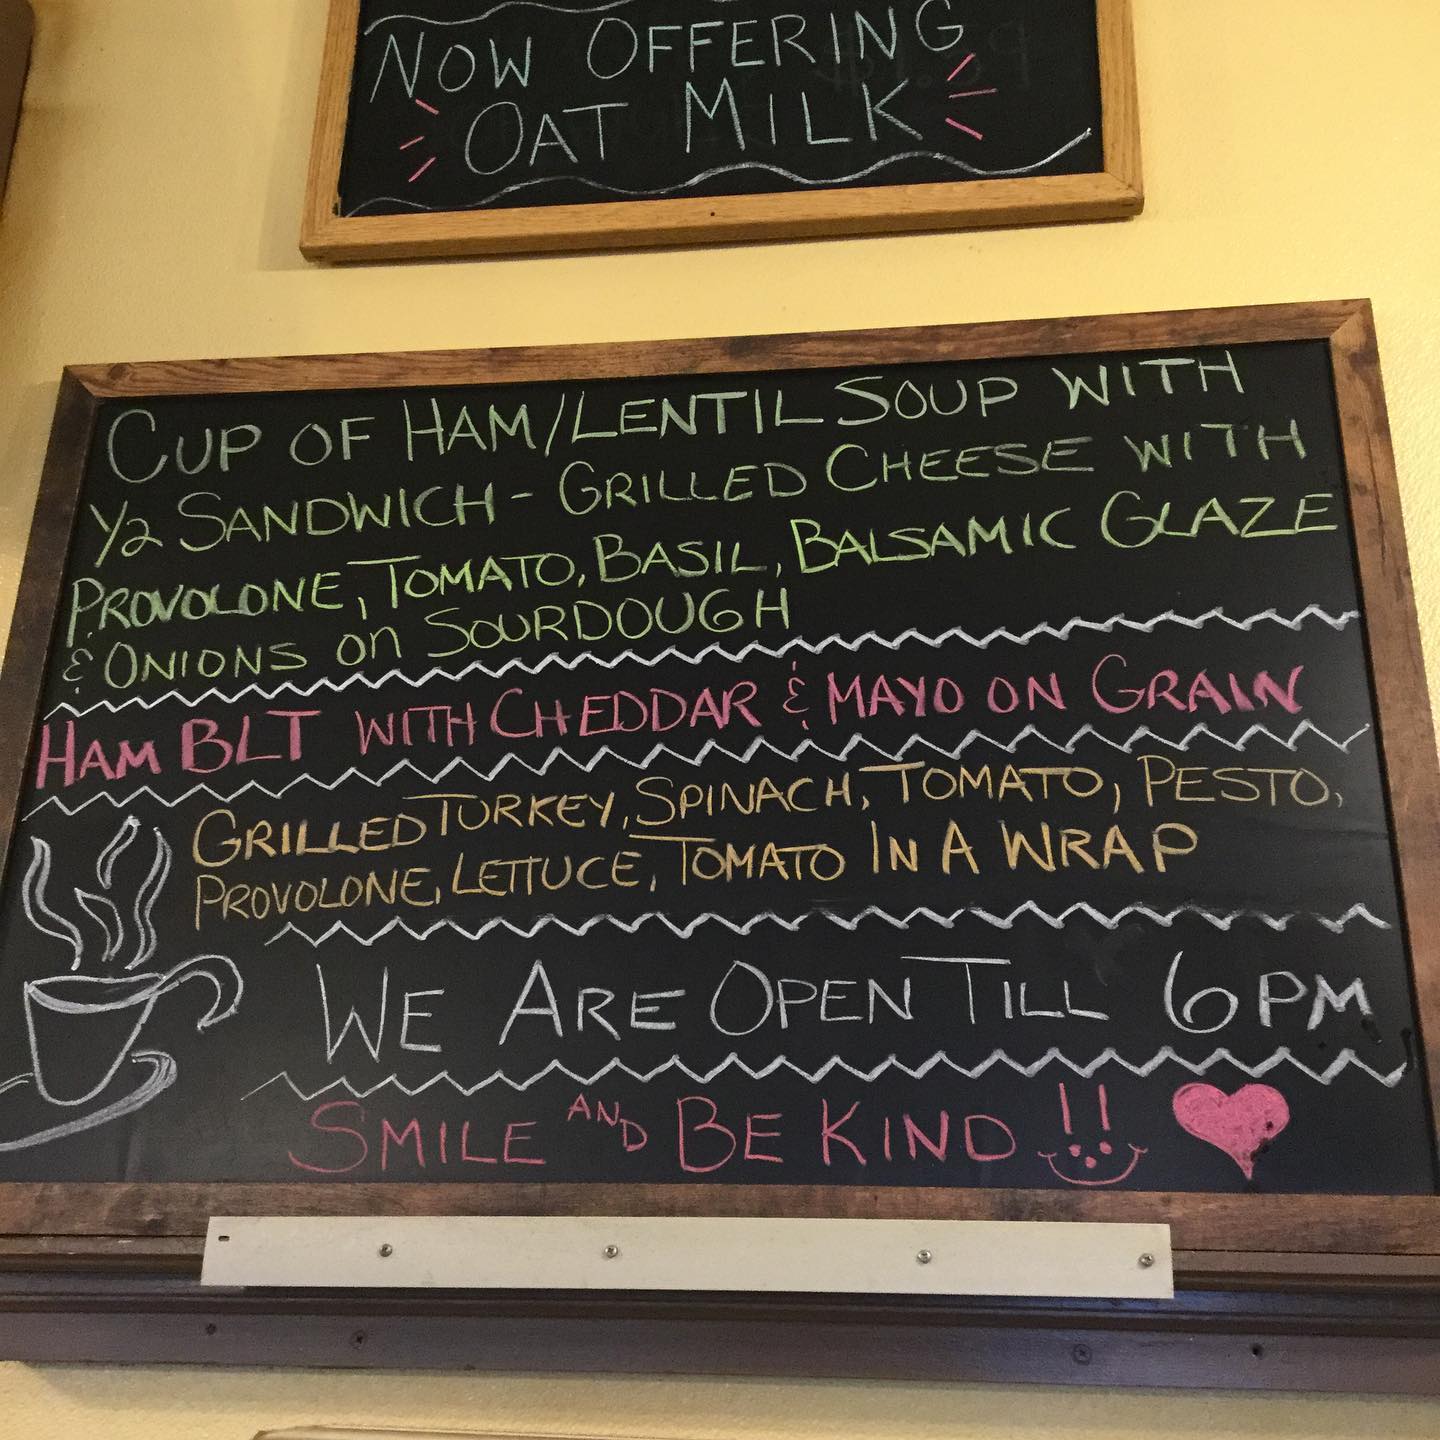 NOW OFFERING
OAT MILK
CUP OF HAM/LENTIL SOUP WITH
1/2 SANDWICH - GRILLED CHEESE WITH
PROVOLONE, TOMATO, BASIL, BALSAMIC GLAZE
& ONIONS on SOURDOUGH
HAM BLT WITH CHEDDAR & MAYO ON GRAIN
GRILLED TURKEY, SPINACH, TOMATO, PESTO,
PROVOLONE, LETTUCE, TOMATO IN A WRAP
WE ARE OPEN TILL 6PM
SMILE AND BE KIND !!